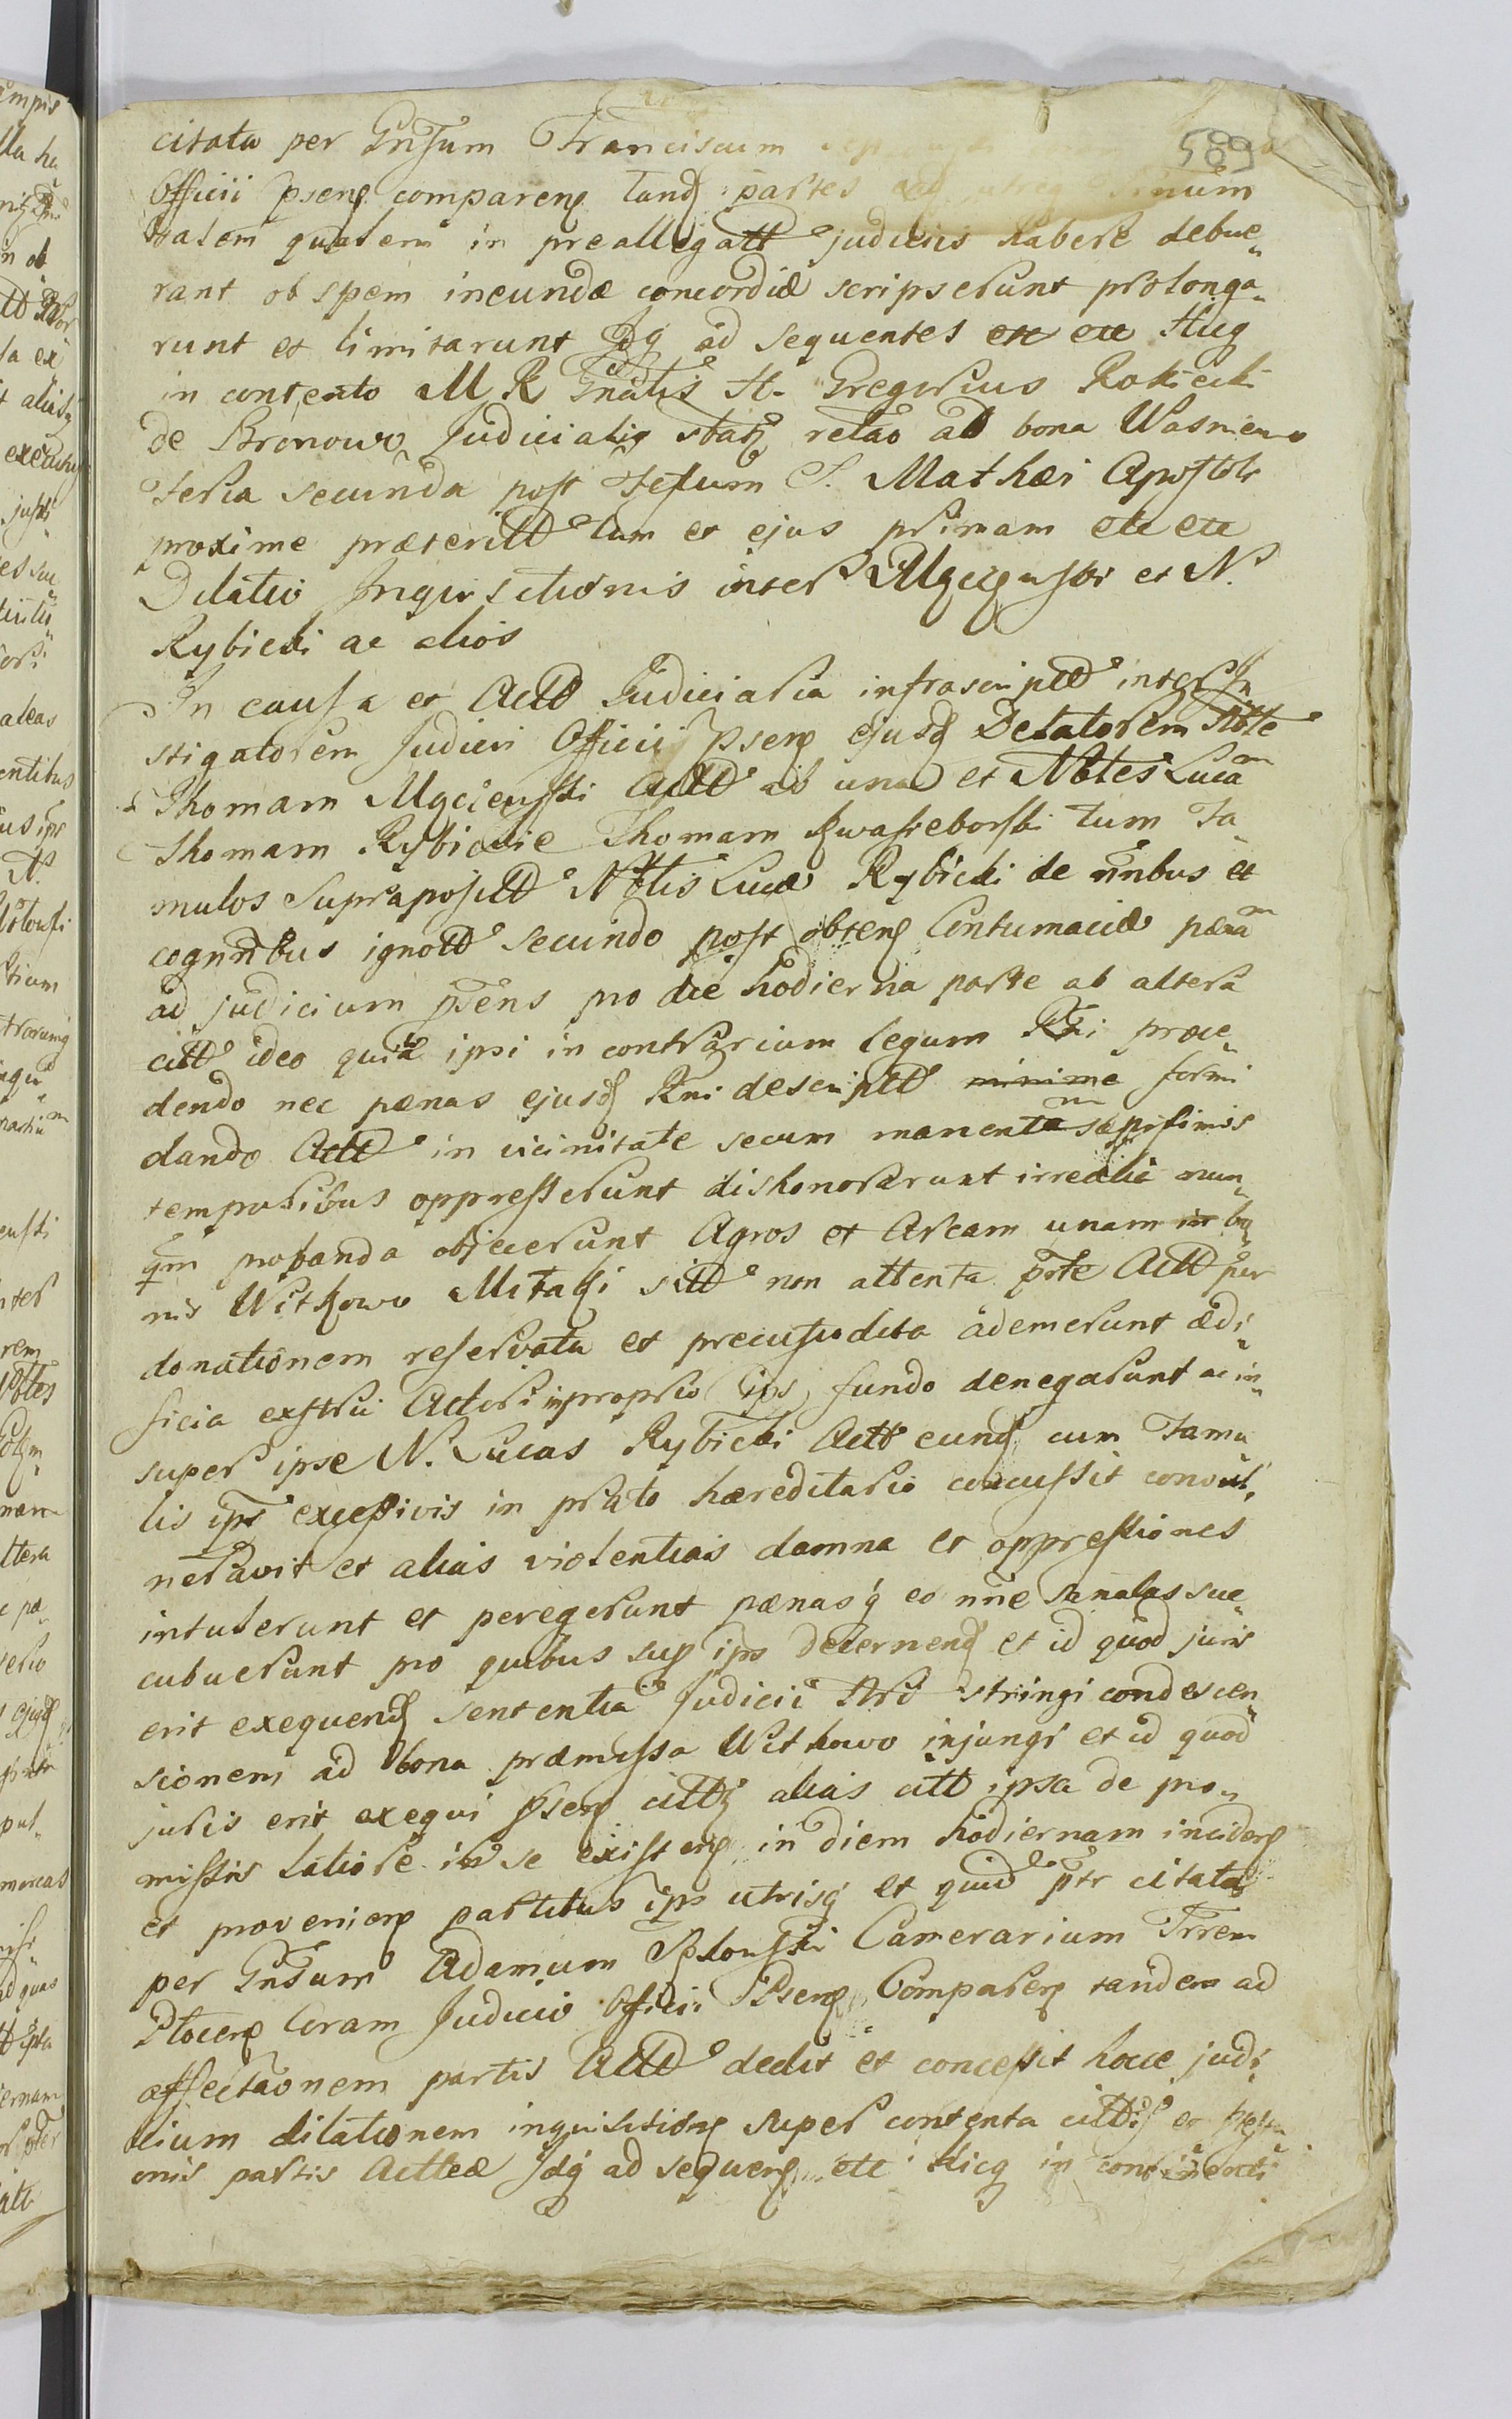 589
citata per Gnsum Franciscum
Officii psens comparens Tandē partes
talem qualem in preallegatt judiciis habere debue„
rant ob spem ineundæ concordiæ scripserunt prolonga„
runt et limitarunt Idq ad sequentes etc etc Hicq
in contento M R Gnalis H. Gregorius Rokicki
de Bronowo Judicialiq relao ad bona Wasniewo
Feria secunda post Festum S. Mathæi Apostoli
proxime præteritt tum et ejus primam etc etc
Dilatio Inquisitionis inter Mącieński et N.
Rybicki ac alios
In causa et Actt Judiciaria infrascriptt inter In
stigatorem Judicii Officii psens ejusdē Delatorem Nble
Thomam Mącieński Actt ab una et Nbles Lucam
Thomam Rybickie Thomam Kwasieborski tum Fa„
mulos Suprapositt Nblis Lucæ Rybicki de nnbus et
cognnbus ignott secundo post obtens Contumaciæ pænam
ad judicium psens pro die hodierna parte ab altera
citt ideo quia ipsi in contrarium legum Rni proce„
dendo nec pænas ejusdē Rni descriptt minime formi
dando Actt in vicinitate secum manentem sæpissimis
temporibus oppresserunt dishonorarunt irrealia nun„
qm probanda objecerunt Agros et Aream unam in bo„
nis Witkowo Mitaki sitt non attenta pte Actt per
donationem reservata et precustodita ademerunt ædi„
ficia exstrui Actori in proprio ips fundo denegarunt ac in„
super ipse N. Lucas Rybicki Actt eundē cum Famu
lis ips excessivis in prato hæreditario concussit convul„
neravit et alias violentias damna et oppressiones
intulerunt et peregerunt pænasq eo nne sanalas suc„
cubuerunt pro quibus sup ips decernendē et id quod juris
erit exequendē sententia Judicii stringi condescen„
sionem ad bona præmissa Witkowo injungi et id quod
juris erit exequi psens citt alias citt ipsa de pro„
missis latiore in se existens in diem hodiernam incidens
et proveniens partibus ips utrisq et quid ptr citata
per Gnsum Adamum Camerarium Trrem
Plocens Coram Judicio Officii Psens Comparens tandem ad
affectaonem partis Actt dedit et concessit hocce judi„
cium dilationem inquisitions super contenta citt
onis partis Actteæ Idq ad sequens etc Hicq in continenti